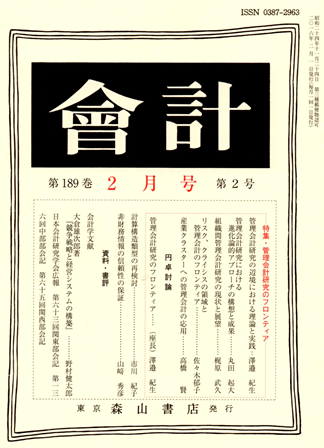 ISSN 0387-2963
會計
第189巻 2月号 第2号
特集・管理会計研究のフロンティア
管理会計研究の辺境における理論と実践……澤邉 紀生
管理会計研究における
進化論的アプローチの構想と成果……丸田 起大
組織間管理会計研究の現状と展望……梶原 武久
リスク、クライシスの領域と
管理会計のフロンティア……佐々木郁子
産業クラスターへの管理会計の応用……高橋 賢
円卓討論
管理会計研究のフロンティア……(座長)澤邉 紀生
計算構造類型の再検討……市川 紀子
非財務情報の信頼性の保証……山﨑 秀彦
資料・書評
会計学文献
大倉雄次郎著
『競争戦略と経営システムの構築』……野村健太郎
日本会計研究学会広報 第六十三回関東部会記 第一三
六回中部部会記 第六十五回関西部会記
東京 森山書店 発行